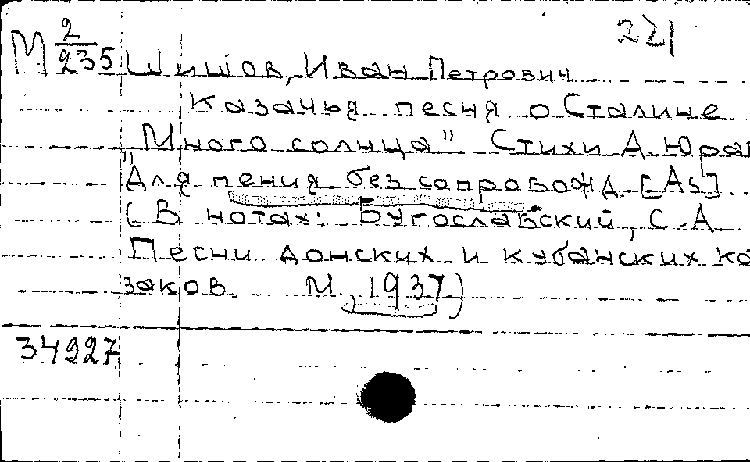 221
М 2/235 Шишов, Иван Петрович
Казачья песня о Сталине
"Много солнца" Стихи А. Юра
Для пения без сопровожд. [As]
(В нотах: Бугославский, С. А.
Песни донских и кубанских ка
заков. М., 1937)
34227